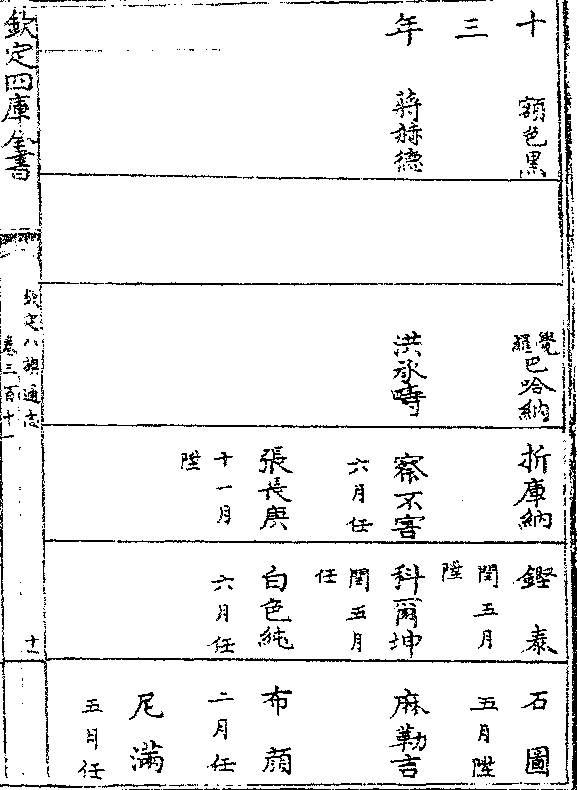 十三年
額色黑
蔣赫德
覺羅巴哈納
洪承疇
折庫納
察不害
六月任
張長庚
十一月
陞
鏗泰
閏五月
陞
科爾坤
閏五月
任
白色純
六月任
石圖
五月陞
麻勒吉
布顏
二月任
尼滿
五月任
欽定四庫全書
欽定八旗通志
卷三百十一
十一